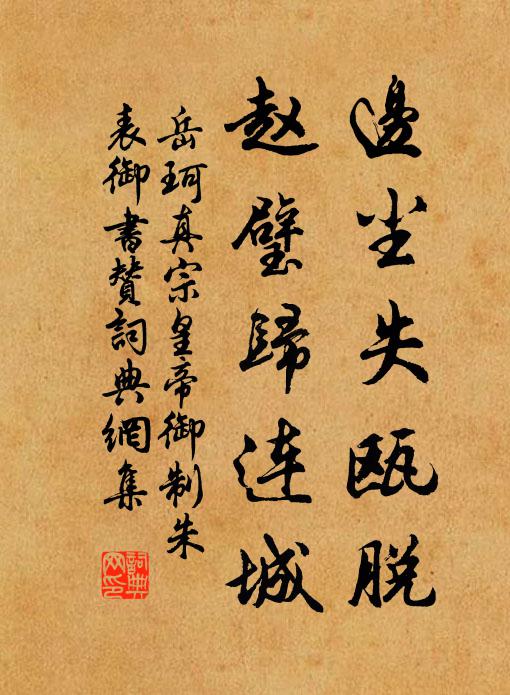 邊尘失瓯脱
赵璧歸连城
岳珂真宗皇帝御制朱
表御書贊詞典網集
詞典
网印